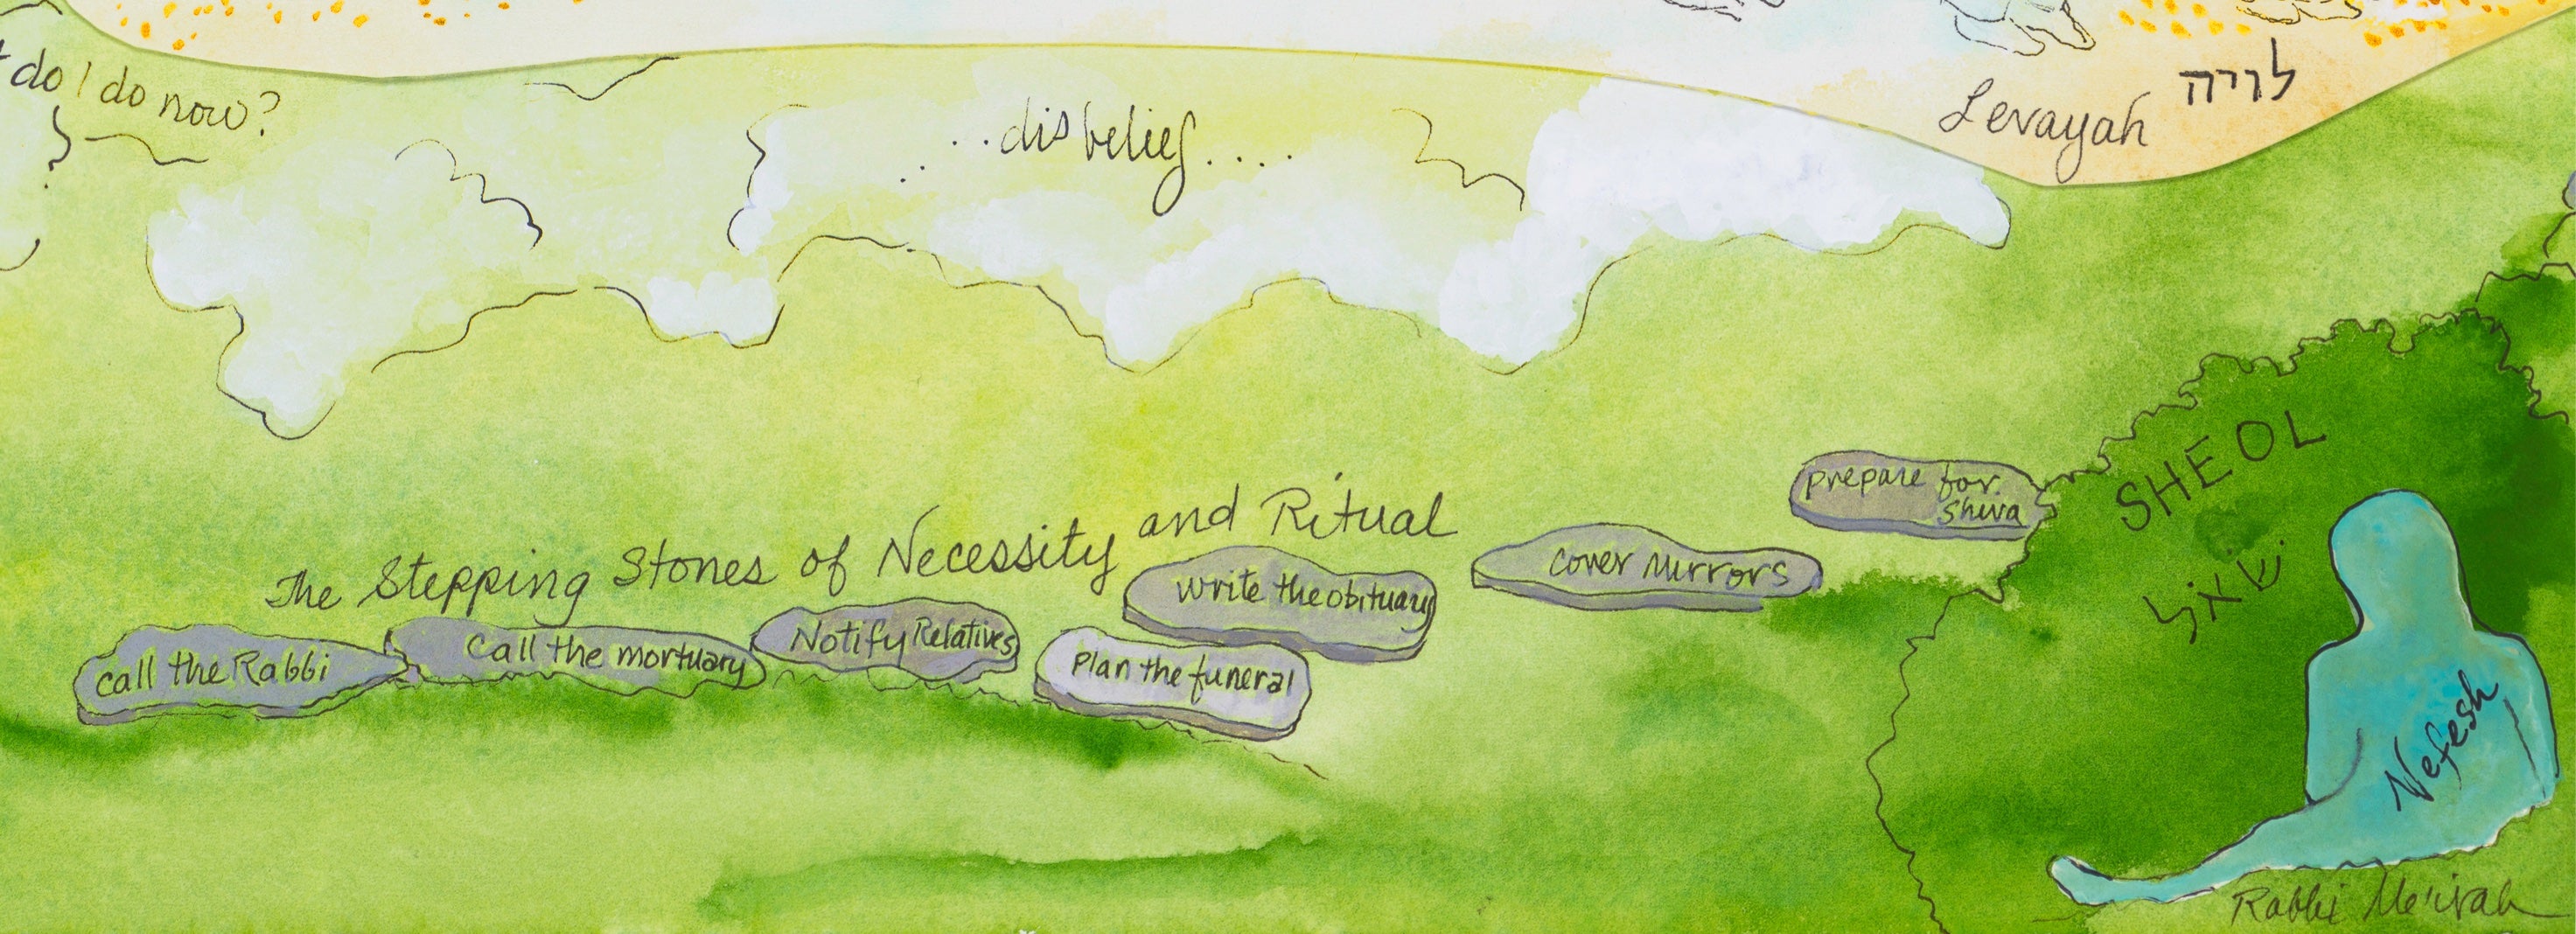 do I do now?
...disbelief....
Levayah
לויה
The Stepping Stones of Necessity and Ritual
call the Rabbi
Call the mortuary
Notify Relatives
Plan the funeral
Write the obituary
Cover Mirrors
prepare for
Shiva
SHEOL
שאל
Nefesh
Rabbi Me'irah